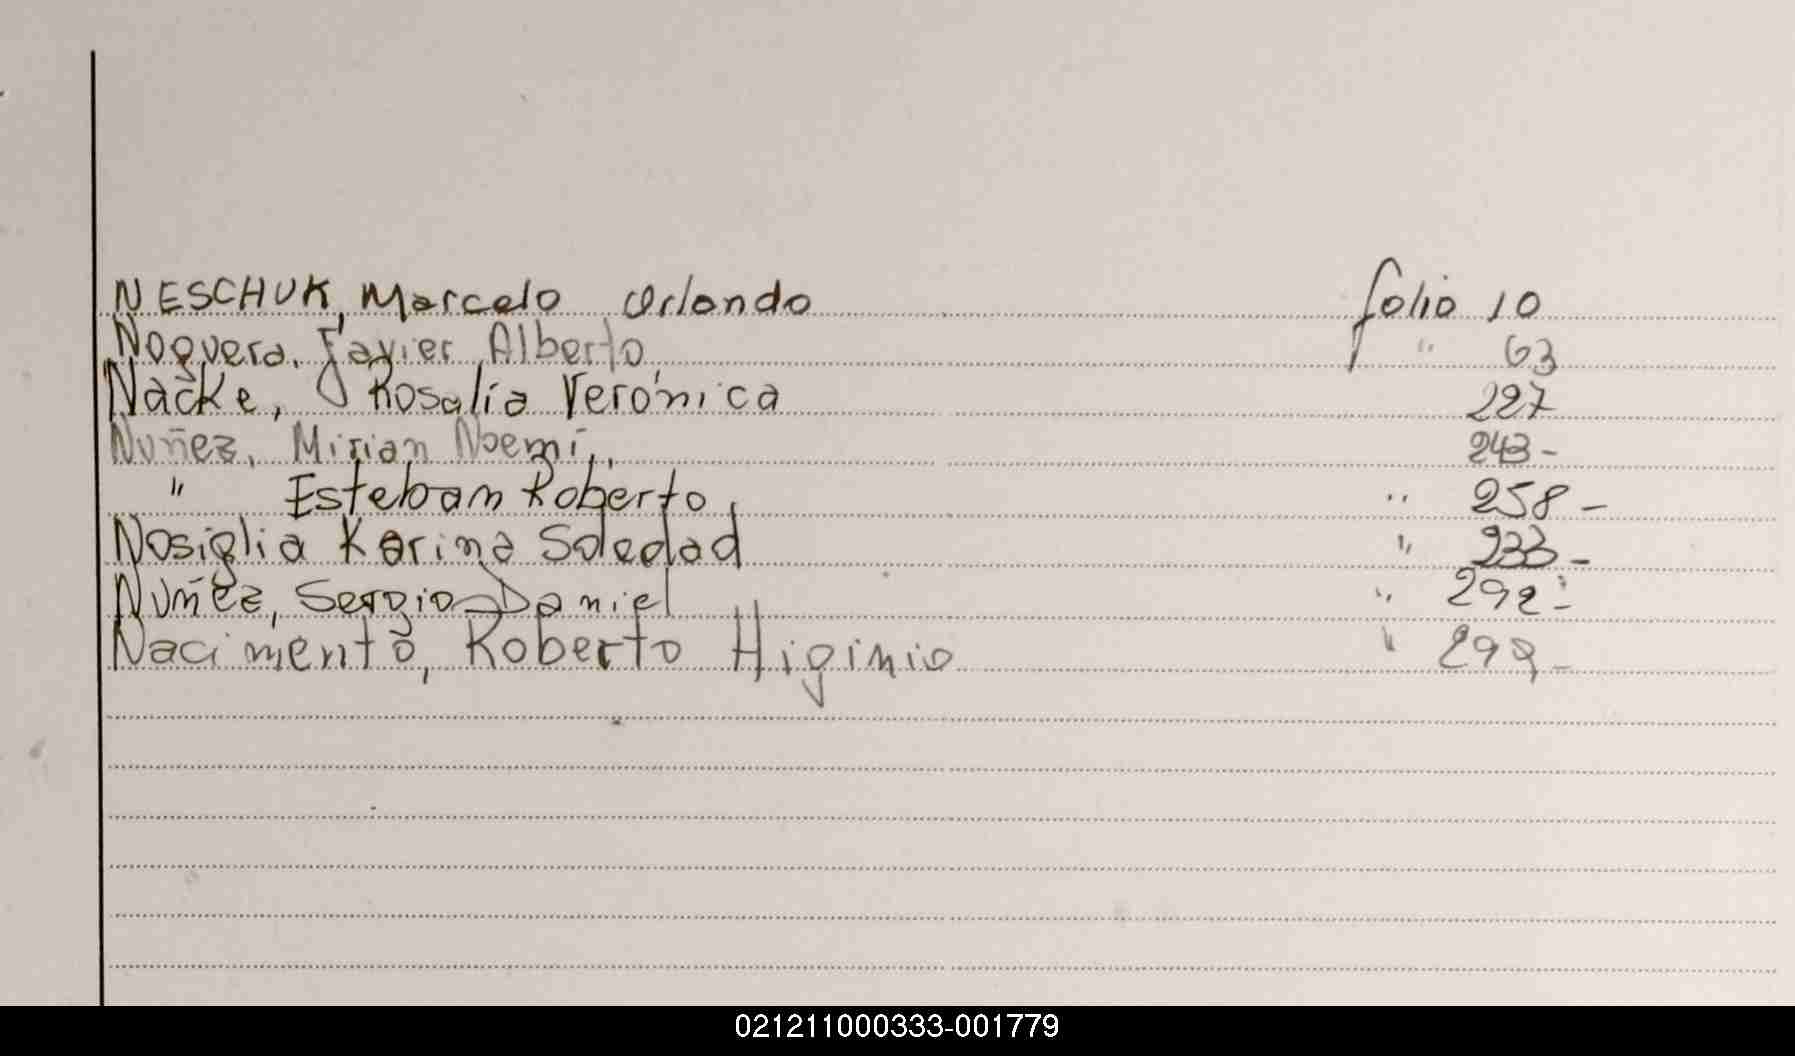 NESCHUK, Marcelo Orlando folio 10
Noguera, Javier Alberto " 63
Nacke, Rosalía Verónica 227
Nuñez, Mirian Noemí, 243-
" Esteban Roberto, " 258-
Nosiglia Karina Soledad " 233-
Nuñez, Sergio Daniel " 292-
Nacimento, Roberto Higinio " 299-
021211000333-001779